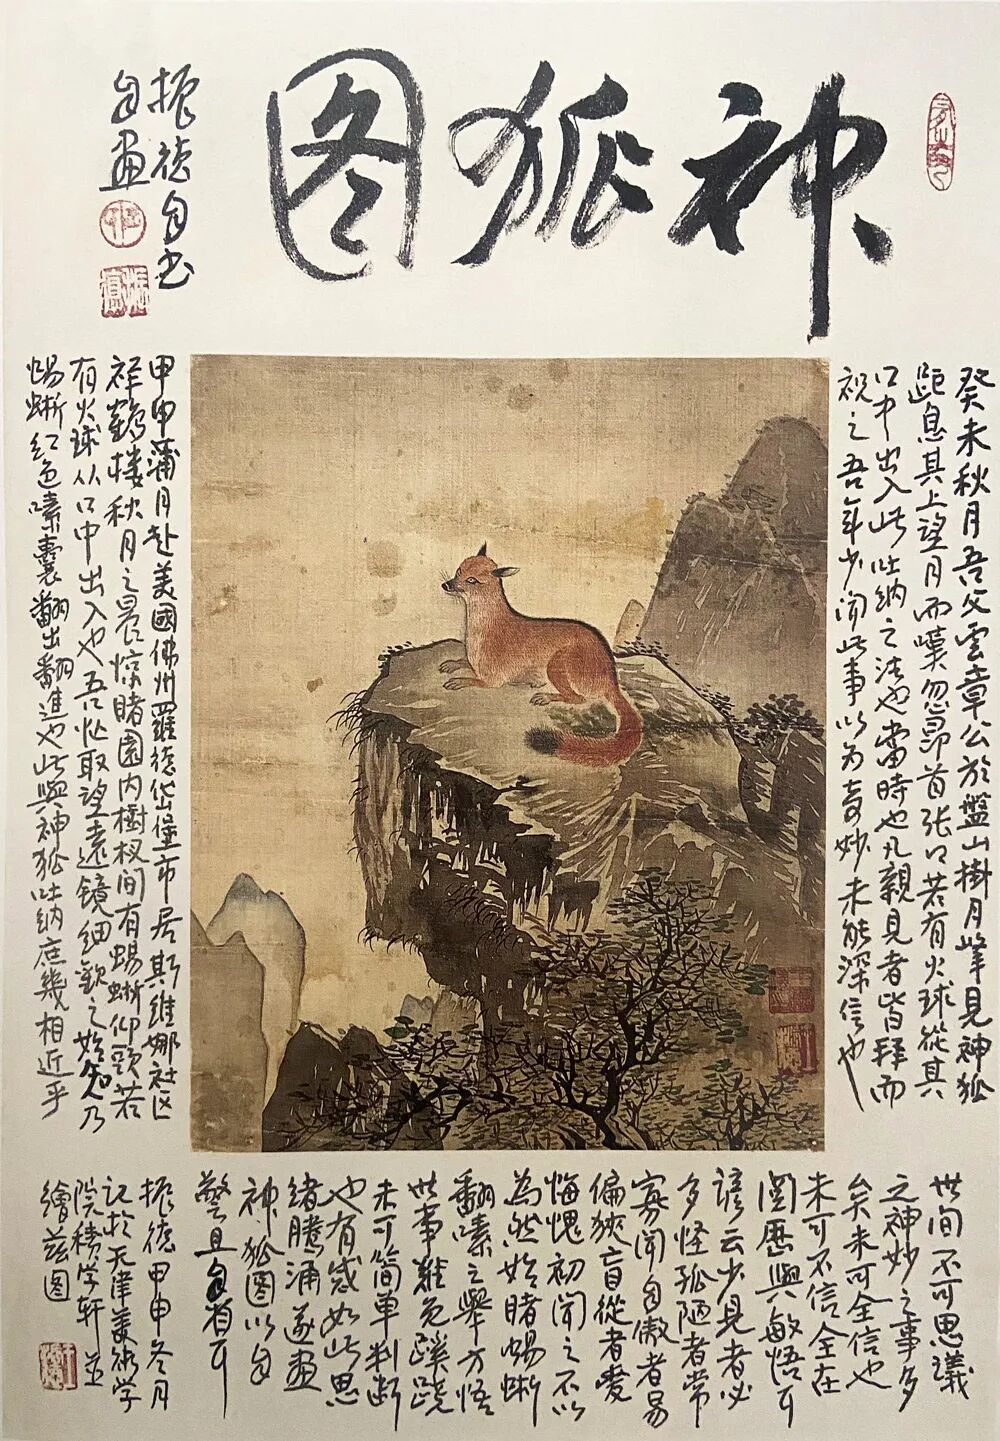 神狐图
振德自书
自画
癸未秋月吾父雲章公於盤山掛月峰見神狐
距息其上望月而嘆忽昂首张口若有火球從其
口中出入此吐纳之法也當時也凡親見者皆拜而
祝之吾年少闻此事以为奇妙未能深信也
甲申蒲月赴美國佛州羅德岱堡市居斯維娜社区
祥鶴楼秋月之晨惊睹園内樹杈间有蜴蜥仰頭若
有火球从口中出入也吾忙取望遠镜细觀之始知乃
蜴蜥红色嗉囊翻出翻進也此與神狐吐纳庶幾相近乎
世间不可思議
之神妙之事多
矣未可全信也
未可不信全在
閲歷與敏悟耳
諺云少見者必
多怪孤陋者常
寡闻自傲者易
偏狹盲從者愛
悔愧初闻之不以
為然始睹蜴蜥
翻嗉之舉方悟
世事難免蹊蹺
未可简单判断
也有感如此思
绪腾涌遂画
神狐图以自
警且自省耳
振德甲申冬月
记於天津美術学
院積学轩並
繪兹图